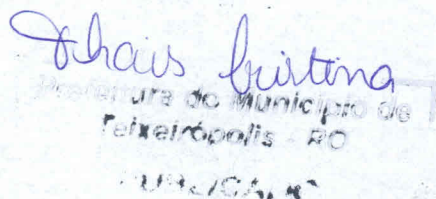 Thais Cristina
Prefeitura do Município de
Teixeirópolis - RO
PUBLICADO